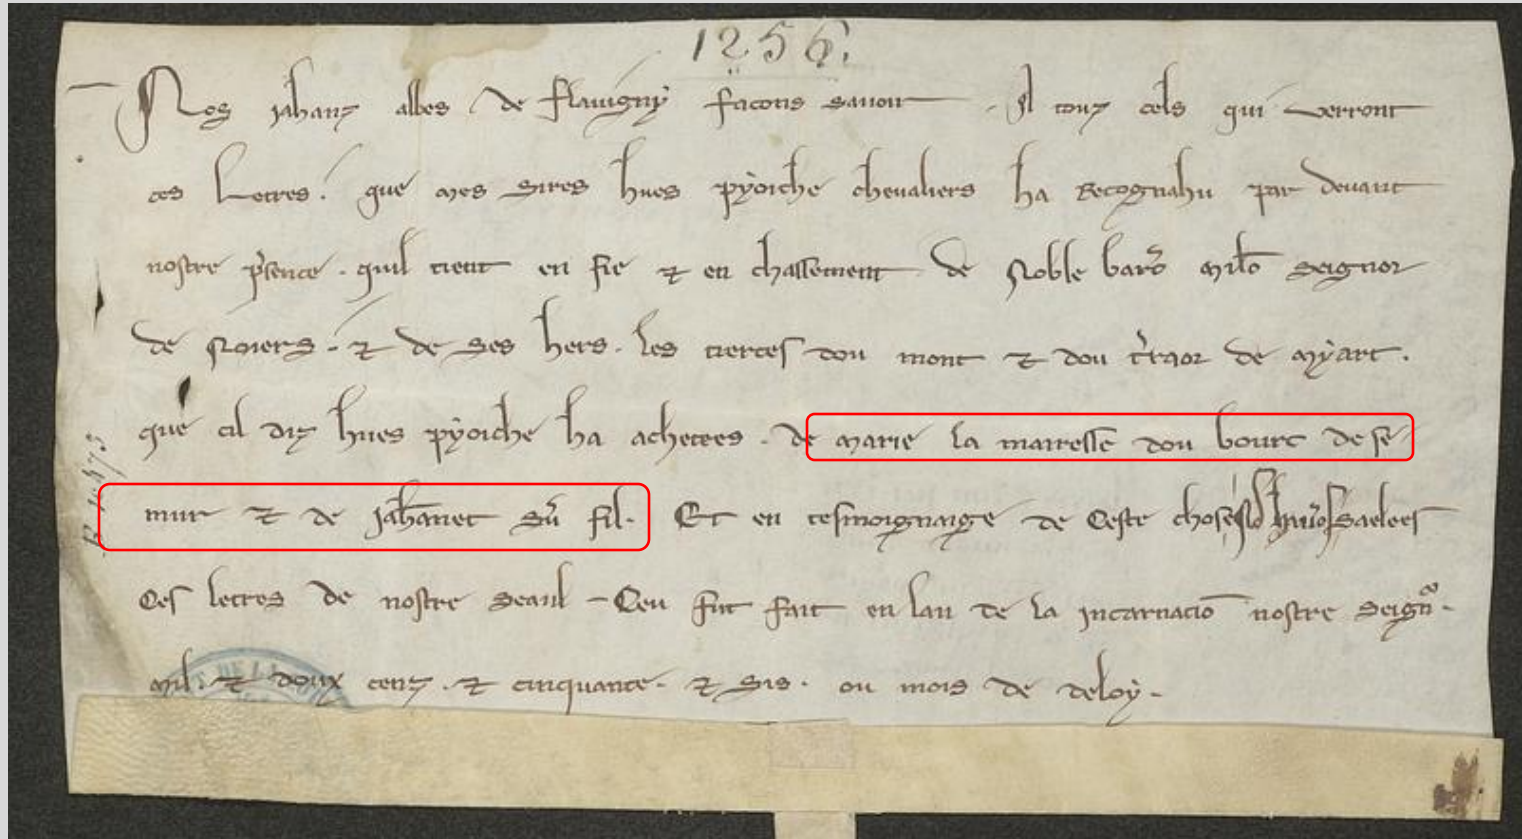 1256.
Nos Jahanz abbes de Flauigny facons sauoir . A touz cels qui verront
ces Lettres . que mes sires hues pyoiche cheualiers ha Recognahu par deuant
nostre p'sence . quil tient en fie et en chassement de Noble baro Mile Seignor
de Noiers . et de ses hers . les tierces dou mont et dou t'raor de Myart .
que cil diz hues pyoiche ha achetees . de Marie la mairesse dou bourc de se
mur et de Jahanet su fil . Et en tesmoignaige de ceste chose saelees
Ces lettres de nostre seaul - Ceu fut fait en lan de la jncarnacio nostre Seign .
mil . et doux cenz . et cinquante . et sis . ou mois de deloy .